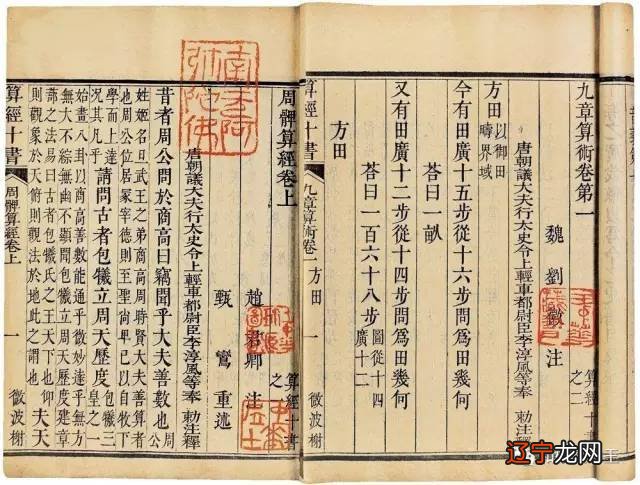 九章算術卷第一 算經十書之二
魏 劉徽 注
唐朝議大夫行太史令上輕車都尉臣李淳風等奉 勅注釋
方田以御田疇界域
今有田廣十五步從十六步問爲田幾何
荅曰一畝
又有田廣十二步從十四步問爲田幾何
荅曰一百六十八步圖從十四廣十二
方田
算經十書 九章算術卷一 方田 一 微波榭
周髀算經卷上 算經十書之
趙君卿 注
甄鸞 重述
唐朝議大夫行太史令上輕車都尉臣李淳風等奉 勅注釋
昔者周公問於商高曰竊聞乎大夫善數也周公
姓姬名旦武王之弟商高周時賢大夫善算者
也周公位居冢宰德則至聖尚卑己以自牧下
學而上達況其凡乎請問古者包犧立周天歷度包犧三皇之一
始畫八卦以商高善數能通乎微妙達乎無方
無大不綜無幽不顯聞包犧立周天歷度建章
蔀之法易曰古者包犧氏之王天下也仰
則觀象於天俯則觀法於地此之謂也夫天
算經十書 周髀算經卷上 一 微波榭
南無阿彌陀佛
辽宁龙网